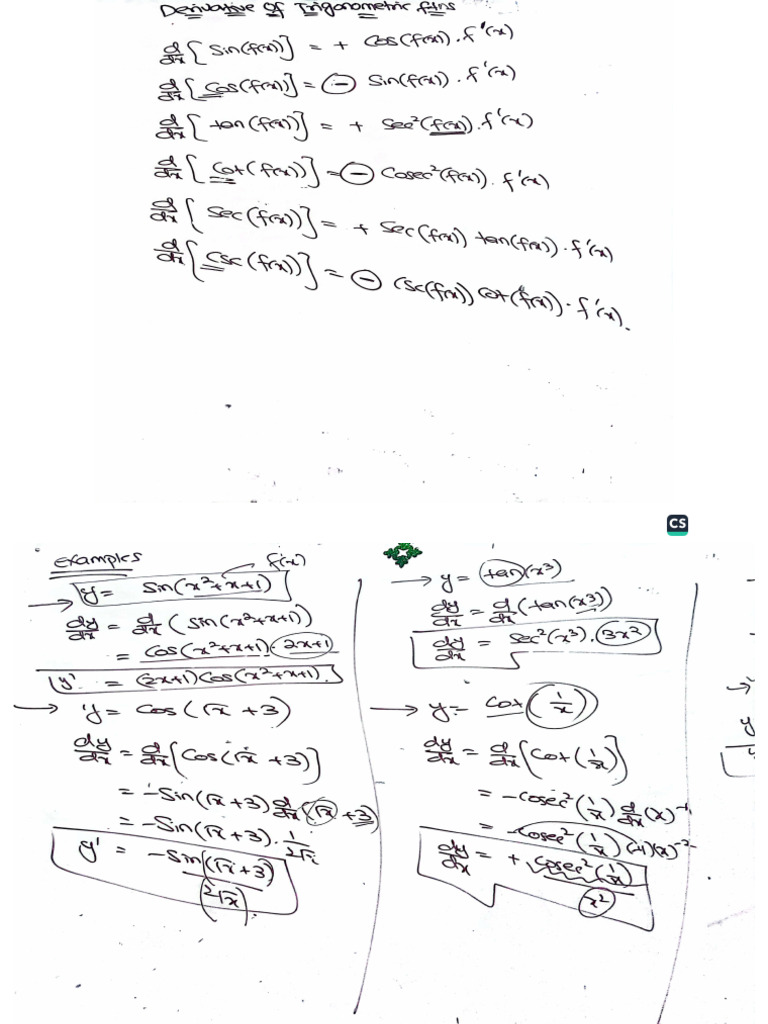 Derivative of Trigonometric ftns
d/dx [ Sin(f(x))] = + Cos(f(x)) . f'(x)
d/dx [ Cos(f(x))] = - Sin(f(x)) . f'(x)
d/dx [ tan(f(x))] = + Sec²(f(x)) . f'(x)
d/dx [ Cot(f(x))] = - Cosec²(f(x)) . f'(x)
d/dx [ Sec(f(x))] = + Sec(f(x)) tan(f(x)) . f'(x)
d/dx [ Csc(f(x))] = - Csc(f(x)) Cot(f(x)) . f'(x).
CS
Examples
f(x)
→ y = Sin(x²+x+1)
dy/dx = d/dx (Sin(x²+x+1))
= Cos(x²+x+1) . 2x+1
y' = (2x+1) Cos(x²+x+1).
→ y = Cos(√x + 3)
dy/dx = d/dx [Cos(√x + 3)]
= -Sin(√x + 3) d/dx (√x + 3)
= -Sin(√x + 3) . 1/2√x
y' = -Sin(√x + 3) / 2√x .
→ y = tan(x³)
dy/dx = d/dx (tan(x³))
dy/dx = Sec²(x³) . 3x²
→ y = Cot (1/x)
dy/dx = d/dx [Cot(1/x)]
= -Cosec²(1/x) d/dx (x)⁻¹
= -Cosec²(1/x) (-1)(x)⁻²
dy/dx = + Cosec²(1/x) / x²
→
y